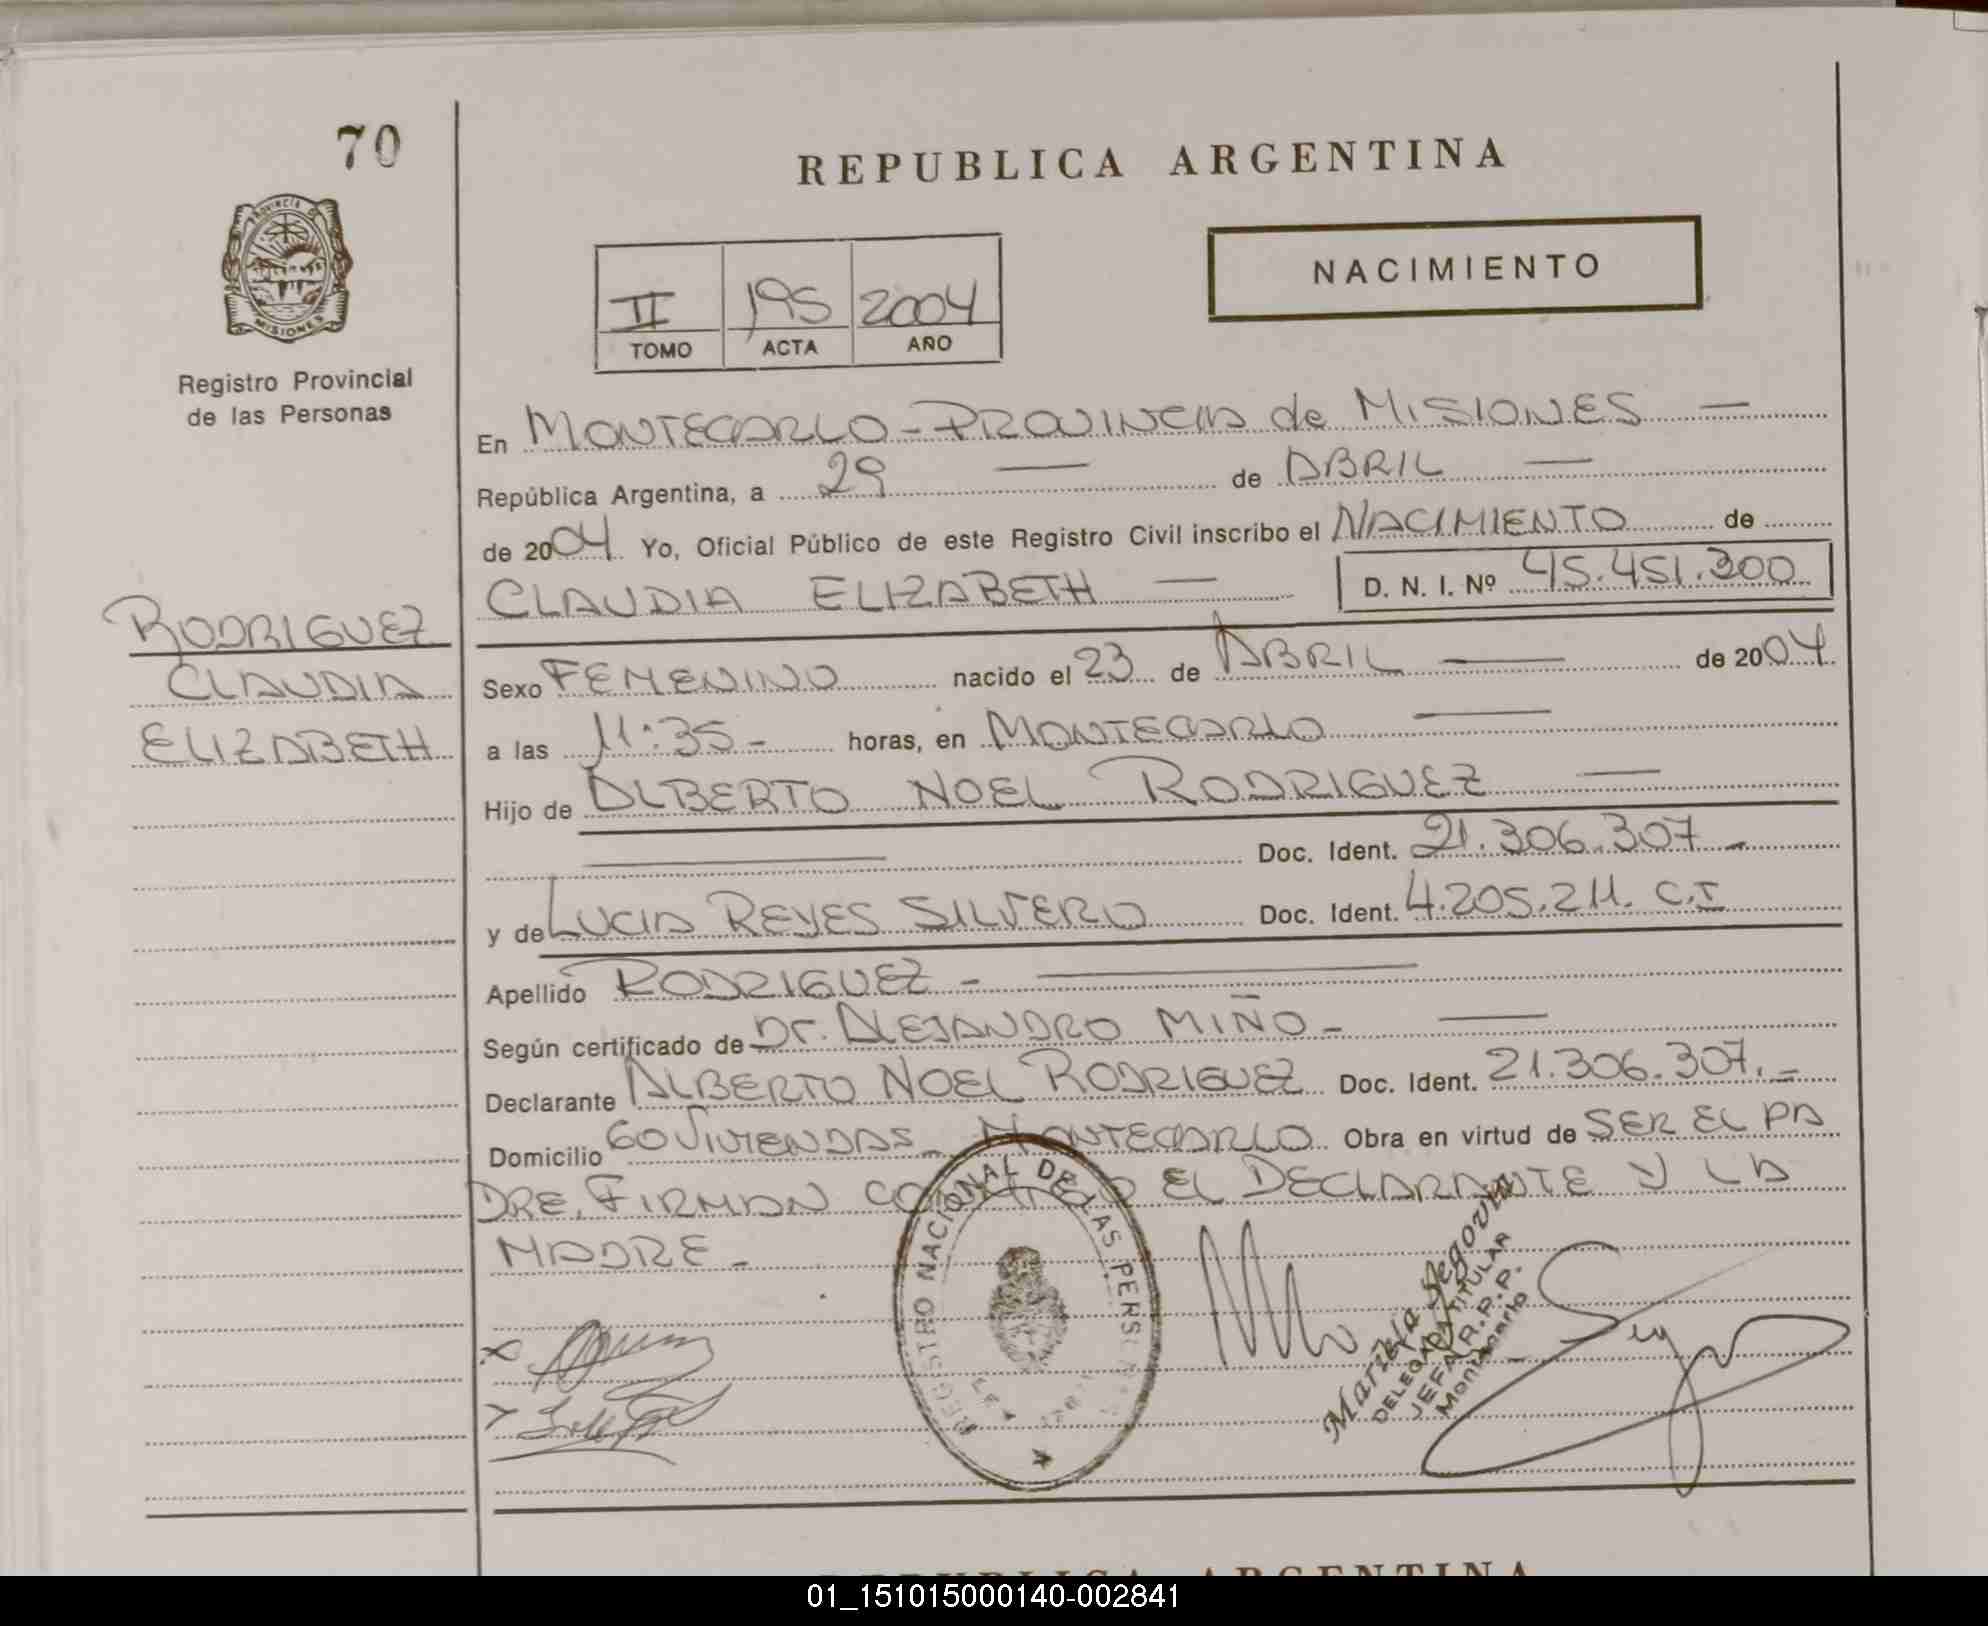 70
REPUBLICA ARGENTINA
PROVINCIA DE
MISIONES
Registro Provincial
de las Personas
NACIMIENTO
II 195 2004
TOMO ACTA AÑO
En MONTECARLO - PROVINCIA de MISIONES —
República Argentina, a 29 — de ABRIL —
de 2004 Yo, Oficial Público de este Registro Civil inscribo el NACIMIENTO de
CLAUDIA ELIZABETH — D. N. I. Nº 45.451.300
RODRIGUEZ
CLAUDIA
ELIZABETH
Sexo FEMENINO nacido el 23 de ABRIL — de 2004
a las 11:35- horas, en MONTECARLO —
Hijo de ALBERTO NOEL RODRIGUEZ —
— Doc. Ident. 21.306.307-
y de LUCIA REYES SILVERO Doc. Ident. 4.205.211. C.I
Apellido RODRIGUEZ - —
Según certificado de Dr. ALEJANDRO MIÑO- —
Declarante ALBERTO NOEL RODRIGUEZ Doc. Ident. 21.306.307.-
Domicilio 60 VIVIENDAS - MONTECARLO Obra en virtud de SER EL PA
DRE. FIRMAN EL DECLARANTE Y LA
MADRE-
REGISTRO NACIONAL DE LAS PERS
Mariela Segovia
DELEGADA TITULAR
JEFA R.P.P.
Montecarlo
REPUBLICA ARGENTINA
01_151015000140-002841